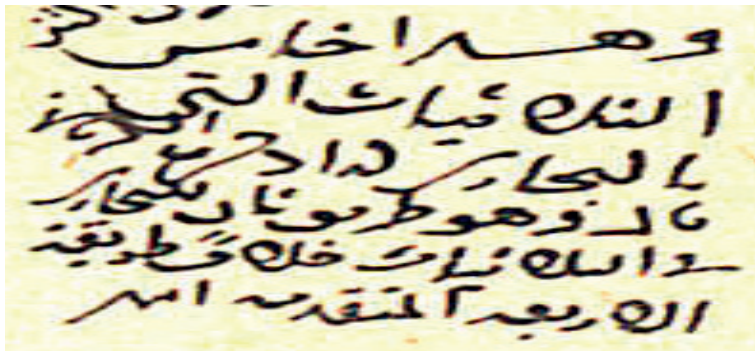 وهذا خامس
الثلاثيات التي
بالبخاري
ثان وهو طريق ثان للبخاري
في الثلاثيات خلاف طريقة
الاربعة المتقدمة اهـ